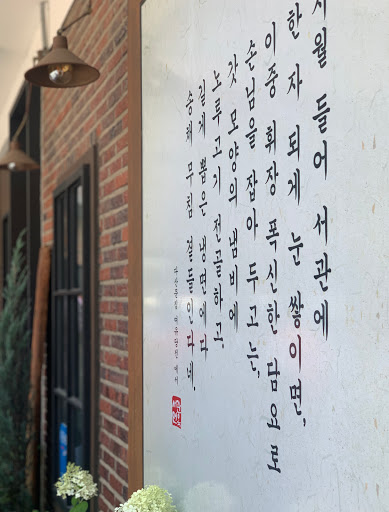 시월 들어 서관에
한 자 되게 눈 쌓이면,
이중 휘장 폭신한 담요로
손님을 잡아 두고는,
갓 모양의 냄비에
노루고기 전골하고,
길게 뽑은 냉면에다
송채 무침 곁들인다네.